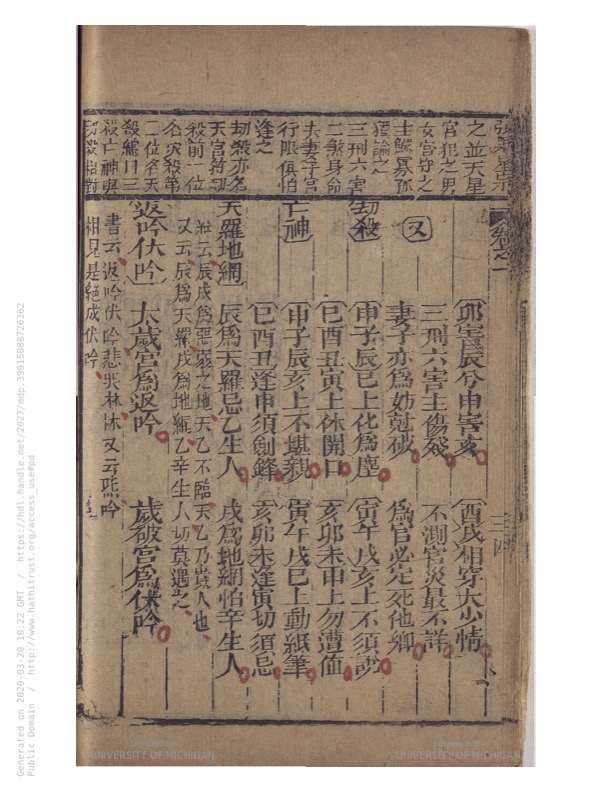 之並天星
官犯之男
女宮守之
三刑六害
二煞身命
夫妻子宮
行限俱怕
逢之
劫殺亦名
天官符
殺前一位
二位名天
殺亡神與
劫殺相對
卯害辰兮申害亥 酉戌相穿太少情
三刑六害主傷殘 不測官災最不詳
又 妻子亦為妨尅破 為官必定死他鄉
劫殺 申子辰巳上化為塵 寅午戌亥上不須説
巳酉丑寅上休開口 亥卯未申上勿遭值
亡神 申子辰亥上不堪親 寅午戌巳上動紙筆
巳酉丑逢申須劍鋒 亥卯未逢寅切須忌
天羅地網 辰為天羅忌乙生人 戌為地網怕辛生人
註云辰戌為惡弱之地天乙不臨天乙乃貴人也
又云辰為天羅戌為地網乙辛生人切莫遇之
返吟伏吟 太歲宮為返吟 歲破宮為伏吟
書云返吟伏吟悲哭林林又云
相見是絕成伏吟
三四
Generated on 2020-03-20 10:22 GMT / https://hdl.handle.net/2027/mdp.39015080726302
Public Domain / http://www.hathitrust.org/access_use#pd
UNIVERSITY OF MICHIGAN
UNIVERSITY OF MICHIGAN